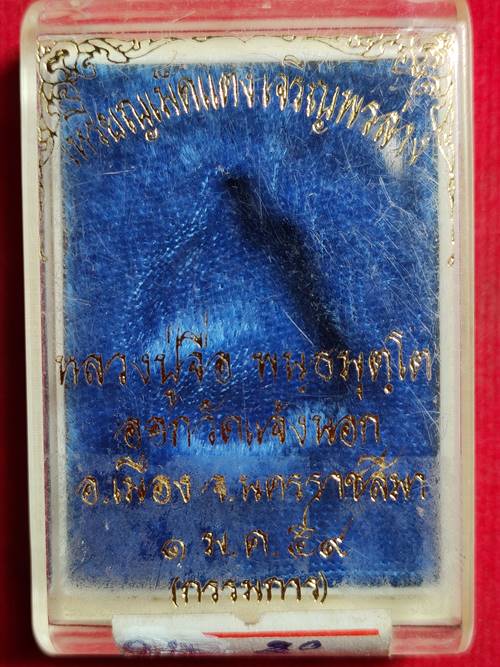 เหรียญเม็ดแตง เจริญพรล่าง
หลวงปู่จื่อ พนฺธมุตฺโต
ออกวัดแจ้งนอก
อ.เมือง จ.นครราชสีมา
๑ ม.ค. ๕๙
(กรรมการ)